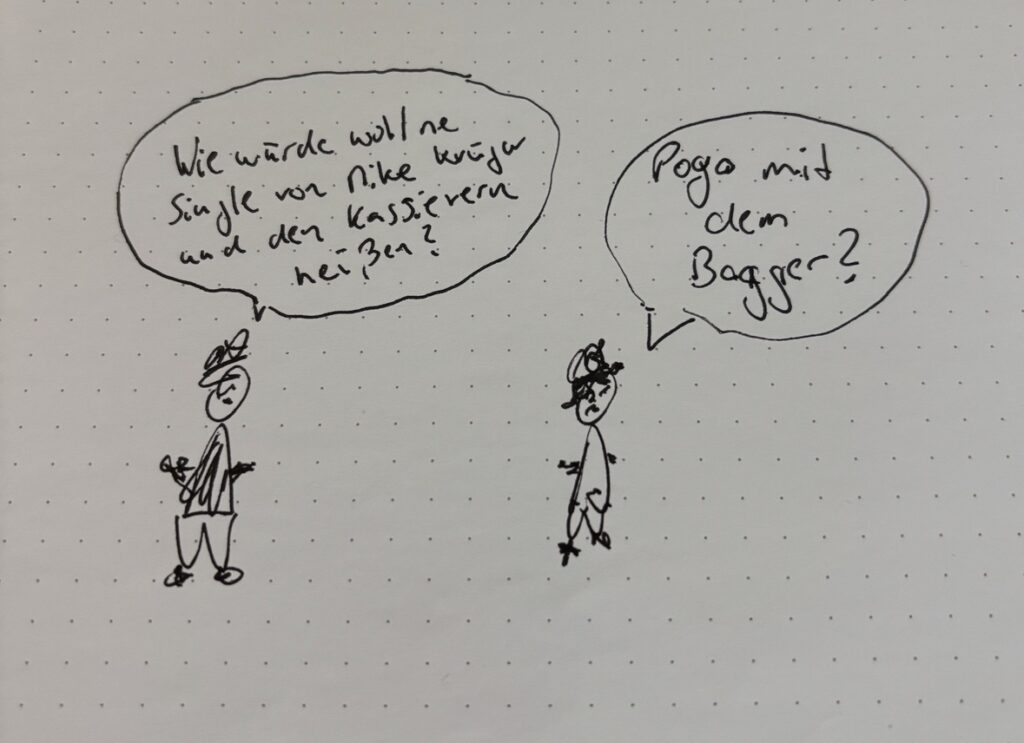 Wie würde wohl ne
Single von Mike Krüger
und den Kassierern
heißen?
Pogo mit
dem
Bagger?